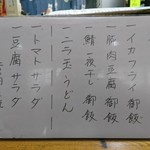 一イカフライ 御飯
一豚肉豆腐 御飯
一鯖一夜干し 御飯
一ニラ玉うどん
一トマトサラダ
一豆腐サラダ